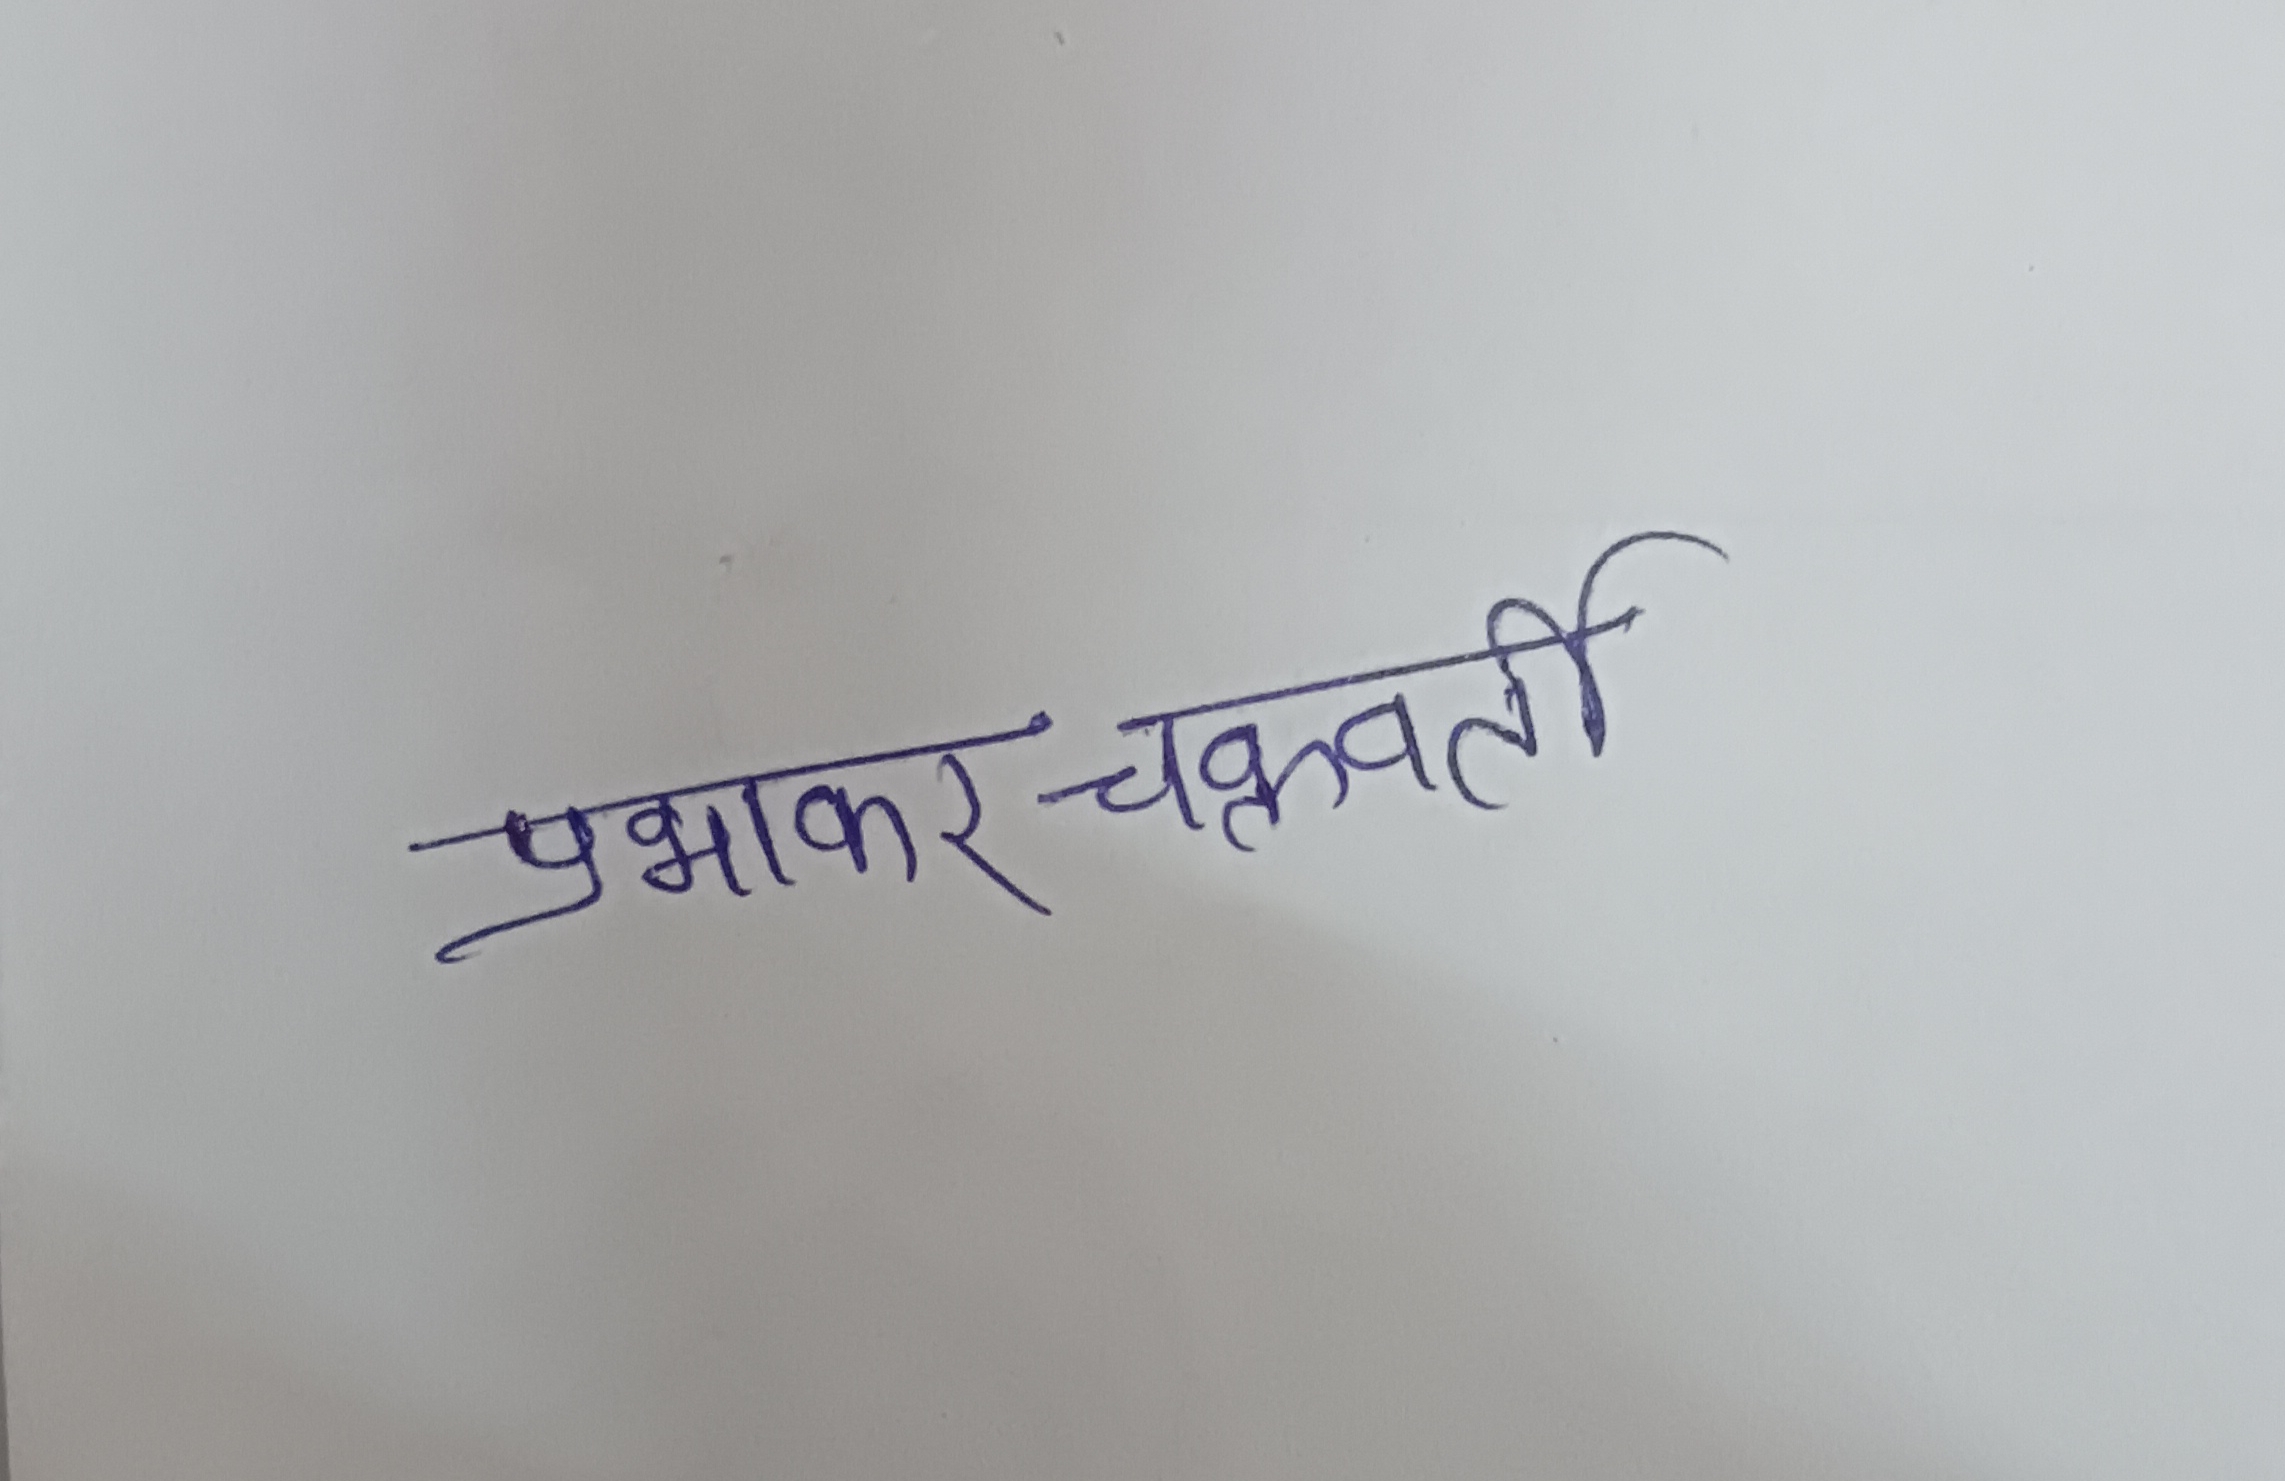 प्रभाकर चक्रवर्ती